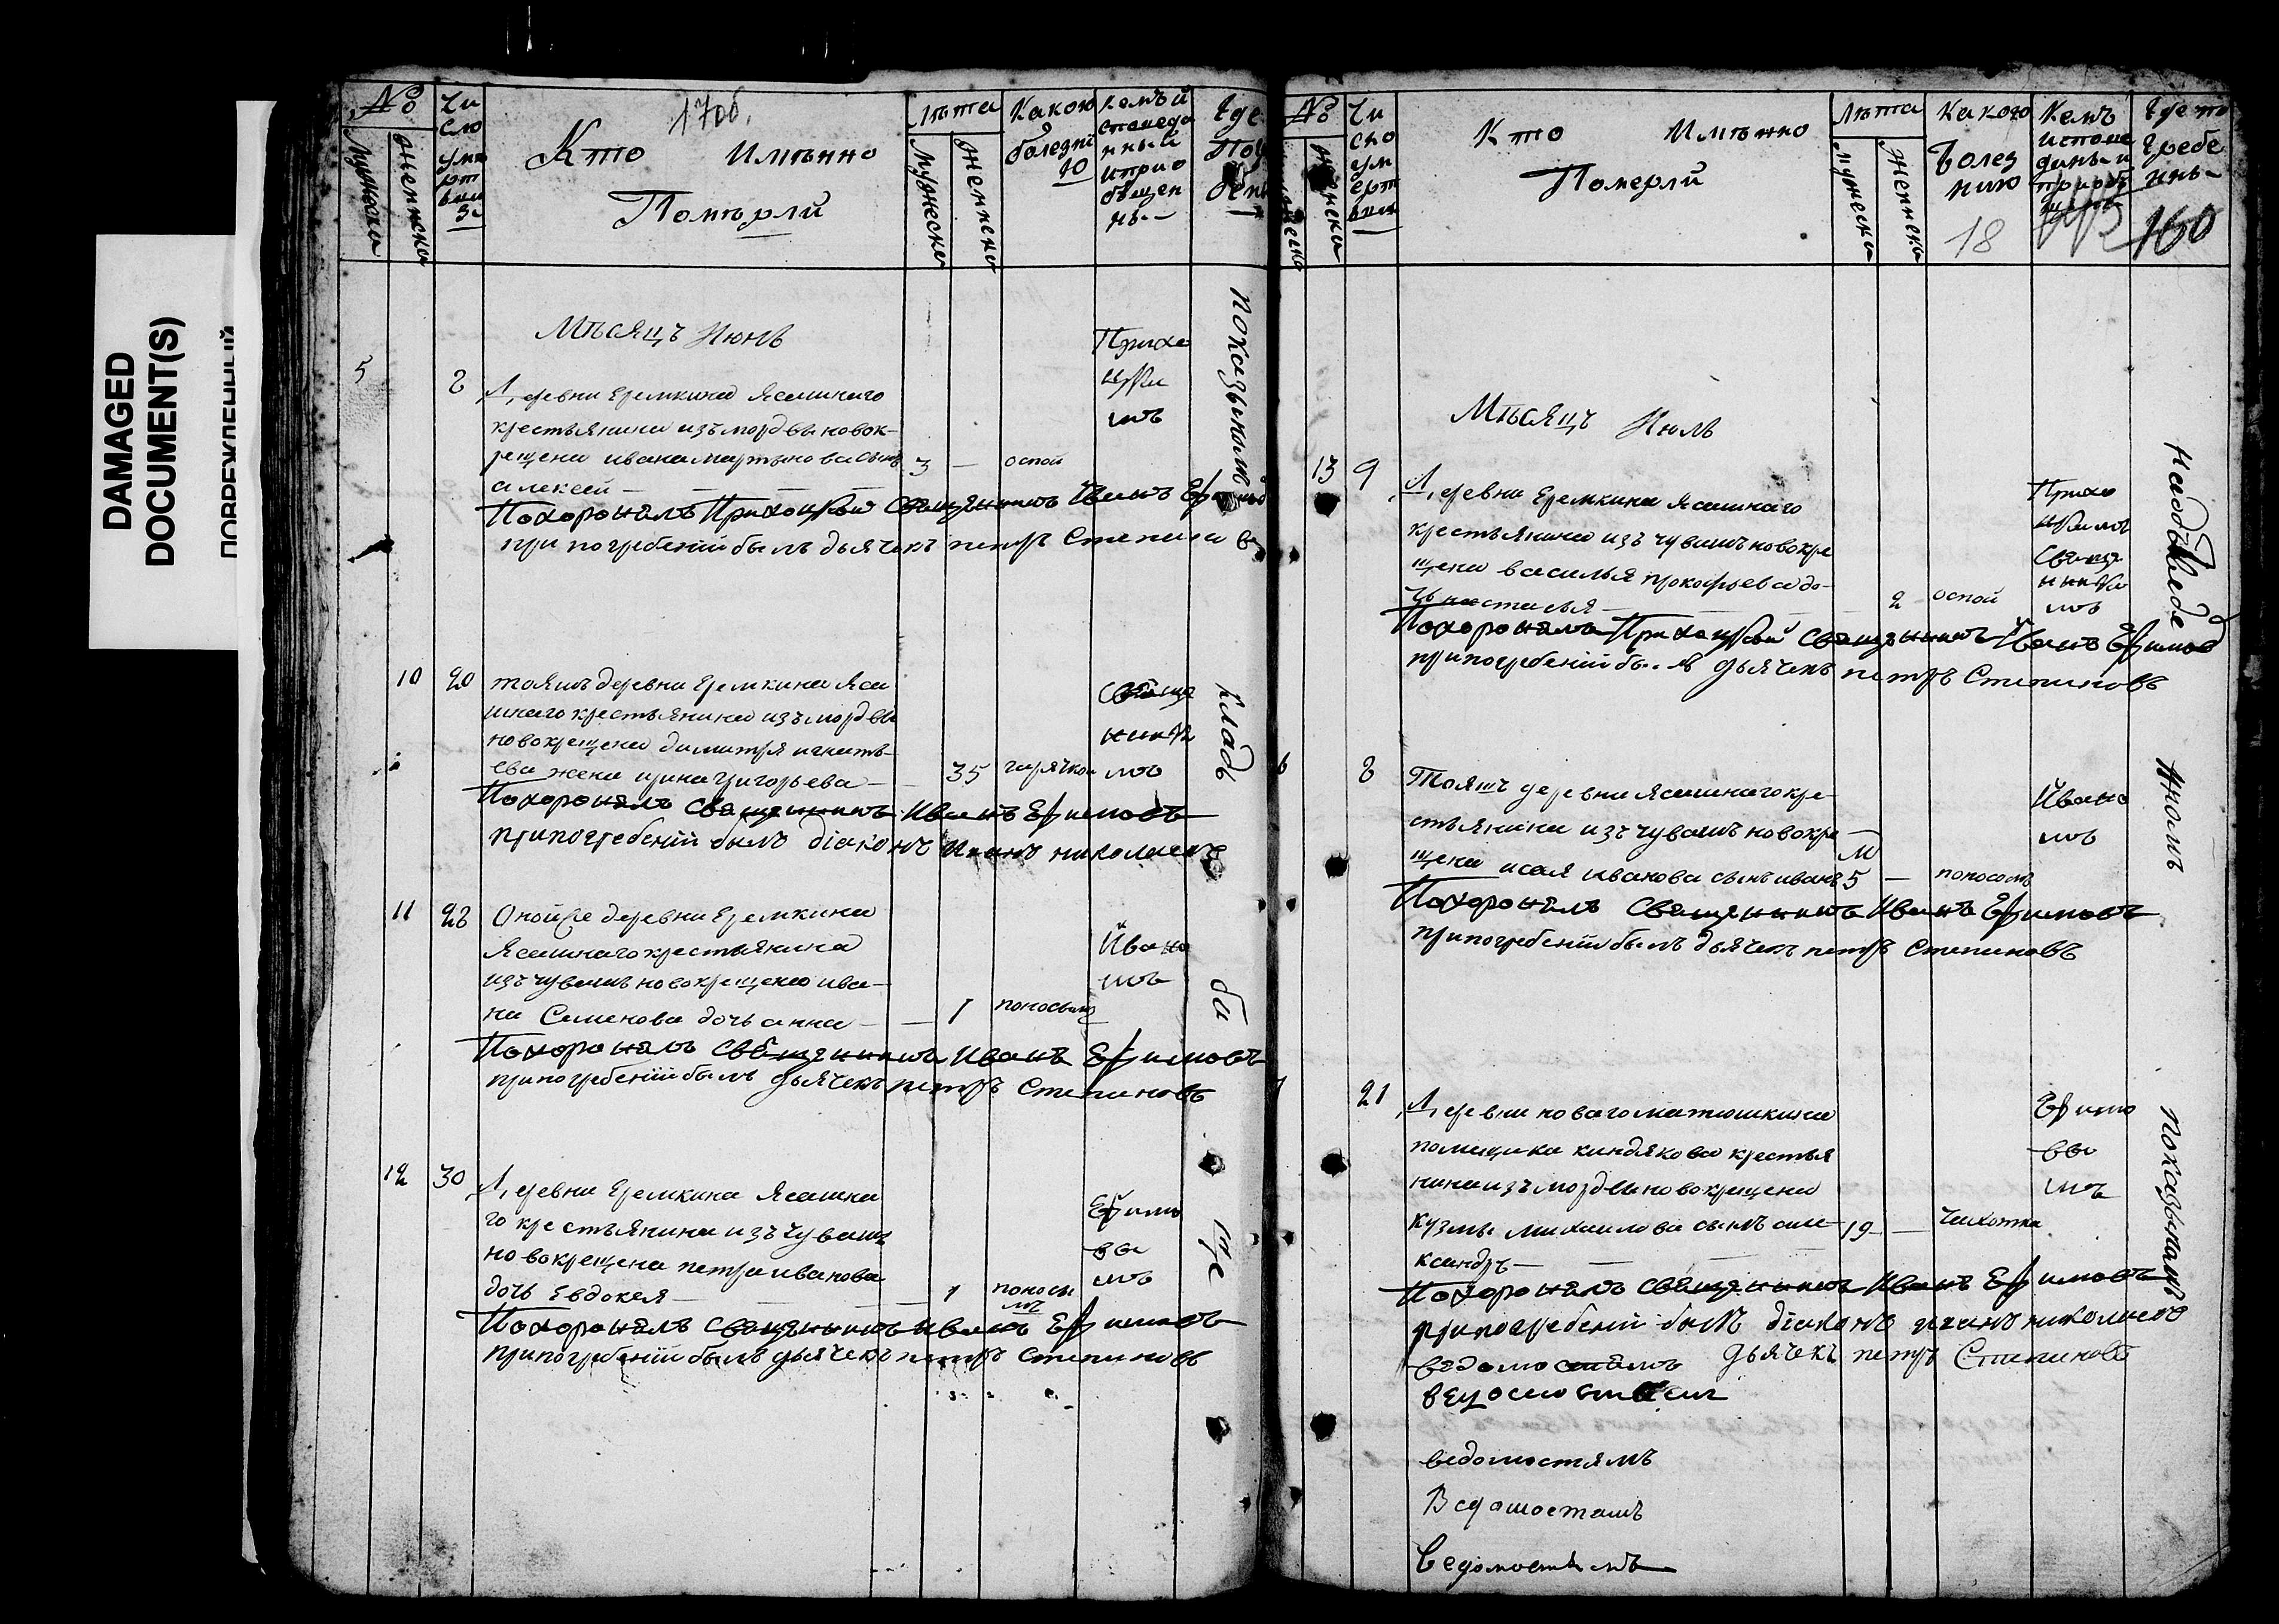 DAMAGED
DOCUMENT(S)
ПОВРЕЖДЕННЫЙ
№
мужеска
женнска
Чи
сло
уме
рт
вши
Кто Имѣнно
Помѣрли
лѣта
мужеска
женнска
Какою
болезнi
ю
Кемъ и
споведа
нный
и прио
бщен
ны
Где
По
бен
Мѣсяцъ Июнь
5
8
Деревни Еремкина ясашнаго
крестьянина изъ мордвы новок-
рещена ивана мартынова сынъ
алексей
3
оспой
Похоронилъ Приходской Священникъ Иванъ Ефимовъ
при погребенiи былъ дьячекъ петръ Степановъ
10
20
тояжъ деревни Еремкина яса
шнаго крестьянина изъ мордвы
новокрещена димитрия игнать-
ева жена ирина григорьева
35
горячкои
Похоронилъ Священникъ Иванъ Ефимовъ
при погребенiи былъ дiаконъ Иванъ николаевъ
11
28
Оной же деревни Еремкина
ясашнаго крестьянина
изъ чувашъ новокрещена ива-
на Семенова дочь анна
1
поносомъ
Похоронилъ Священникъ Иванъ Ефимовъ
при погребенiи былъ дьячекъ петръ Степановъ
12
30
Деревни Еремкина ясашна
го крестьянина изъ чувашъ
новокрещена петра иванова
дочь Евдокея
1
поносо
мъ
Похоронилъ Священникъ Иванъ Ефимовъ
при погребенiи былъ дьячекъ петръ Степановъ
Прихо
цки
мъ
Свяще
ннико
мъ
Ивано
мъ
Ефимо
вы
мъ
показыномъ
кладъ
би
ще
№
женнска
Чи
сло
ум
ерт
вши
Кто Имѣнно
Померли
Лѣта
мужеска
женнска
Какою
болез
нию
18
Кемъ
испове
даны и
приоб
щены
Где по
гребе
ны
160
Мѣсяцъ Июль
13
9
Деревни Еремкина ясашнаго
крестьянина изъ чувашъ новокре
щена василья прокофьева до-
чь настасья
2
оспой
Похоронилъ Приходской Священникъ Иванъ Ефимовъ
при погребенiи былъ дьячекъ петръ Степановъ
6
8
Тояжъ деревни ясашнаго кре-
стьянина изъ чувашъ новокре
щена исая иванова сынъ иванъ
М
5
поносомъ
Похоронилъ Священникъ Иванъ Ефимовъ
при погребенiи былъ дьячекъ петръ Степановъ
7
21
Деревни новаго матюшкина
помещика киндякова крестья
нина изъ мордвы новокрещена
кузмы михаилова сынъ але-
ксандръ
19
чихотка
Похоронилъ Священникъ Иванъ Ефимовъ
при погребенiи былъ дiаконъ иванъ николаевъ
дьячекъ петръ Степановъ
ведомостямъ
ведомостямъ
ведомостямъ
Ведомостамъ
Ведомостямъ
Прихо
цкимъ
Свяще
ннико
мъ
Ивано
мъ
Ефимо
вы
мъ